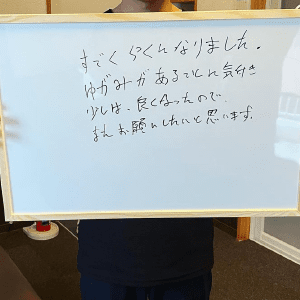 すごくらくになりました。
ゆがみがあるていに気付き
少しは、良くなったので、
またお願いしたいと思います。